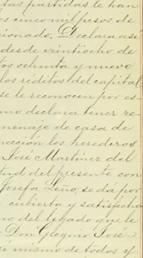 tas partidas le han
os cinco mil pesos de
cionado. Declarase
desde veintiocho de
os ochenta y nueve
los réditos del capital
se le reconocen por es
mo declara tener re
menaje de casa de
nación los herederos
José Martinez del
tud del presente con
Josefa Feño, se da por
cubierta y satisfecha
no del legado que le
Don Gregorio José
si mismo de todos y